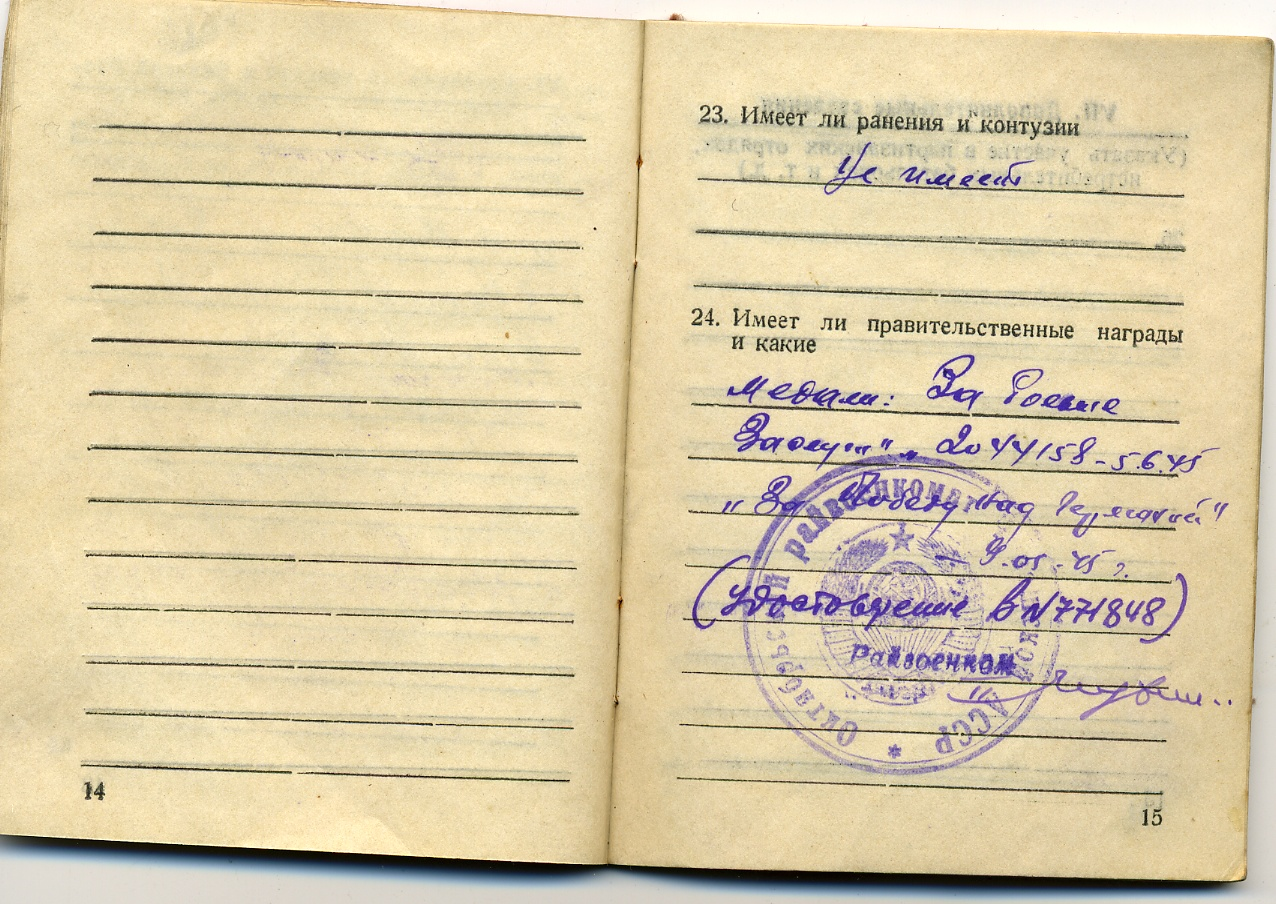 23. Имеет ли ранения и контузии
Не имеет
24. Имеет ли правительственные награды
и какие
Медали: За боевые
Заслуги" 2044158-5.6.45
"За Победу над Германией"
9.05.45 г.
(удостоверение В №771848)
Райвоенком
Октябрьский райвоенкомат
АССР
14
15